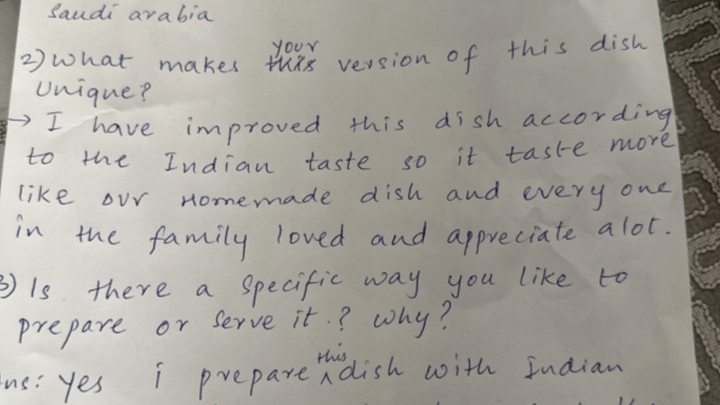 Saudi arabia
2) What makes your version of this dish
Unique?
→ I have improved this dish according
to the Indian taste so it taste more
like our Homemade dish and every one
in the family loved and appreciate alot.
3) Is there a specific way you like to
prepare or serve it.? Why?
Ans: Yes i prepare this dish with Indian